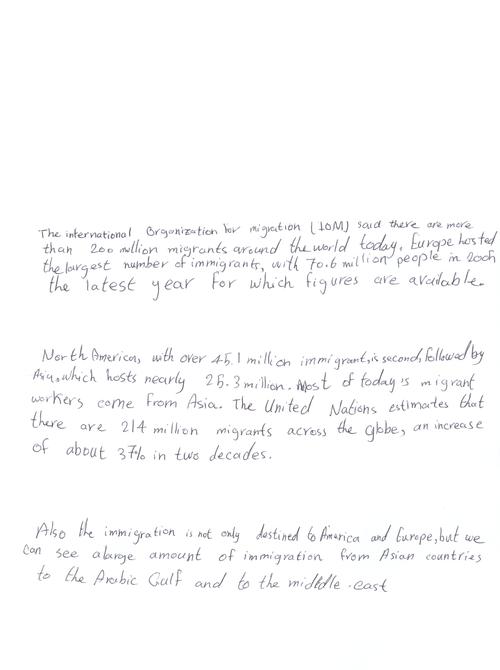 The international Organization for migration (IOM) said there are more
than 200 million migrants around the world today. Europe hosted
the largest number of immigrants, with 70.6 million people in 200
the latest year for which figures are available.
North America, with over 45.1 million immigrant, is second, followed by
Asia, which hosts nearly 25.3 million. Most of today's migrant
workers come from Asia. The United Nations estimates that
there are 214 million migrants across the globe, an increase
of about 37% in two decades.
Also the immigration is not only destined to America and Europe, but we
can see a large amount of immigration from Asian countries
to the Arabic Gulf and to the middle-east